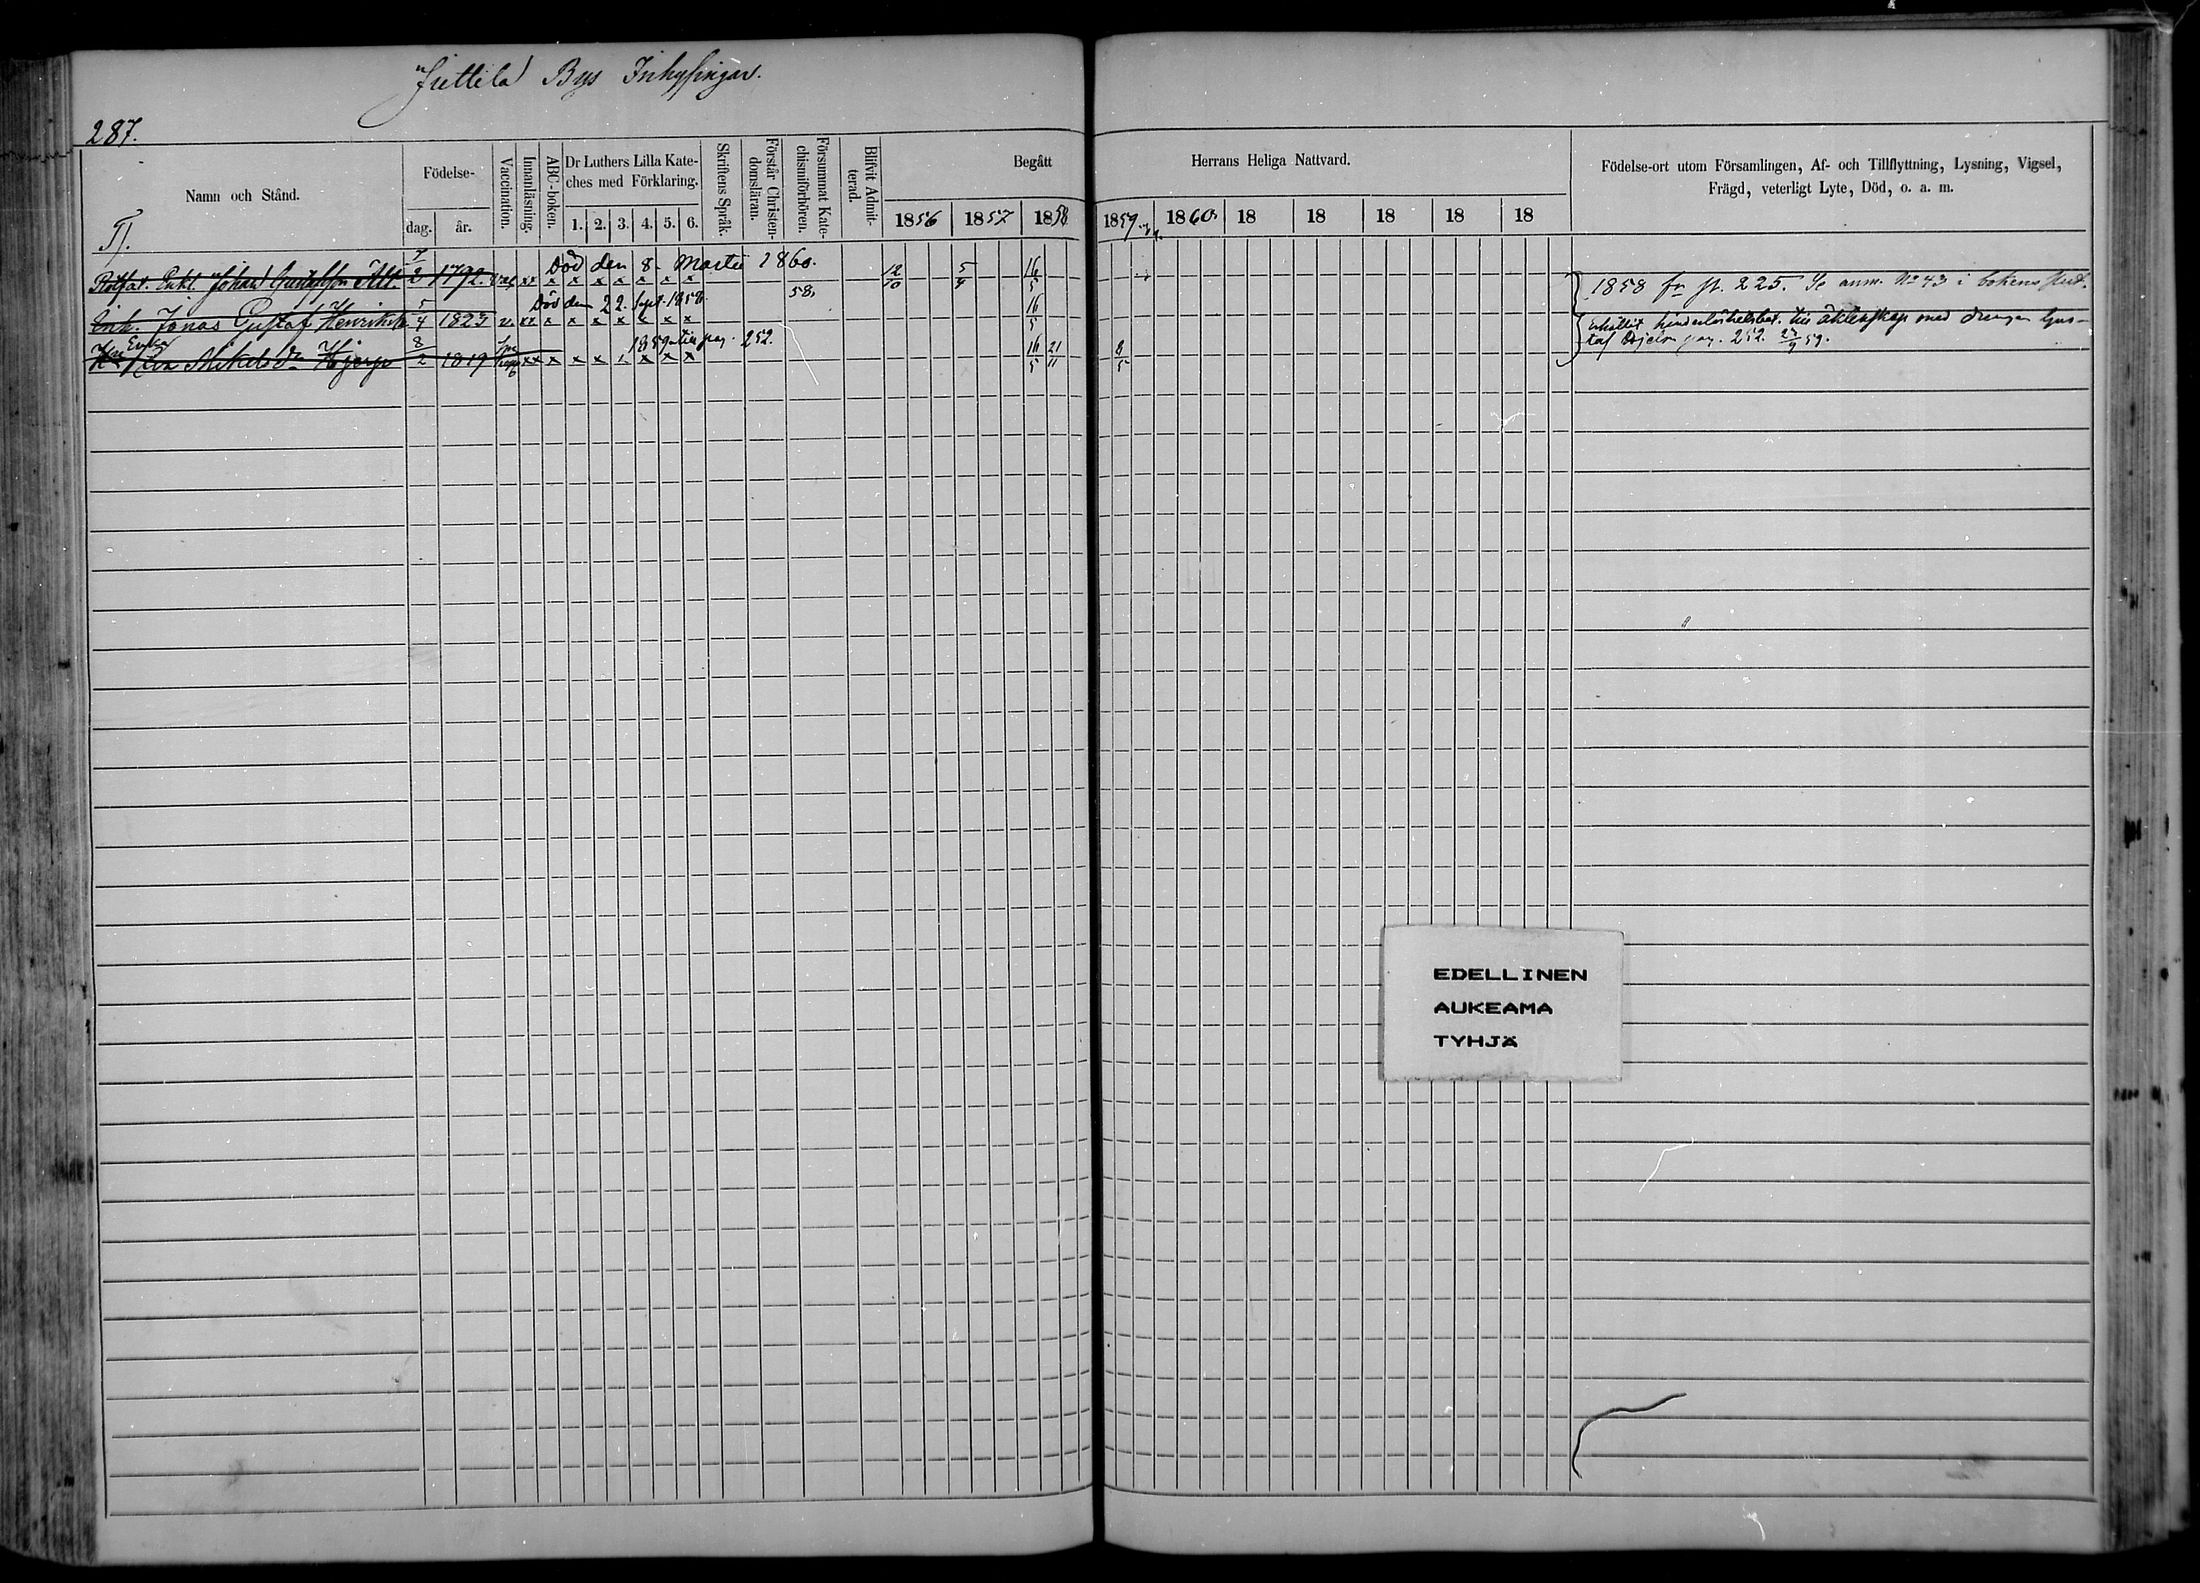 Juttila Bys Inhysingar.
287.
Namn och Stånd.
Födelse-
dag. år.
Vaccination.
Innanläsning.
ABC-boken.
Dr Luthers Lilla Kate-
ches med Förklaring.
1. 2. 3. 4. 5. 6.
Skriftens Språk.
Förstår Christen-
domsläran.
Försummat Kate-
chismiförhören.
Blifvit Admit-
terad.
Begått Herrans Heliga Nattvard.
1856 1857 1858 1859 1860 18 18 18 18 18
Födelse-ort utom Församlingen, Af- och Tillflyttning, Lysning, Vigsel,
Frägd, veterligt Lyte, Död, o. a. m.
Död den 8 Martii 1860.
Enkl. Johan Gustafsson 7/2 1792. xx x x x x x x x 12/10 5/4 16/5 1858 fr p. 225. Se anm. No 43 i bokens slut.
58.
Död den 22. Sept. 1858.
Inh. Jonas Gustaf Henriksson 5/4 1823 v. xx x x x x x x x 16/5
Enka 1859 till pag. 252.
Mikelsdr 8/2 1819 xx x x x x x x 16/5 21/11 8/5
äktenskap med drengen Gus-
taf pag. 252. 59.
EDELLINEN
AUKEAMA
TYHJÄ